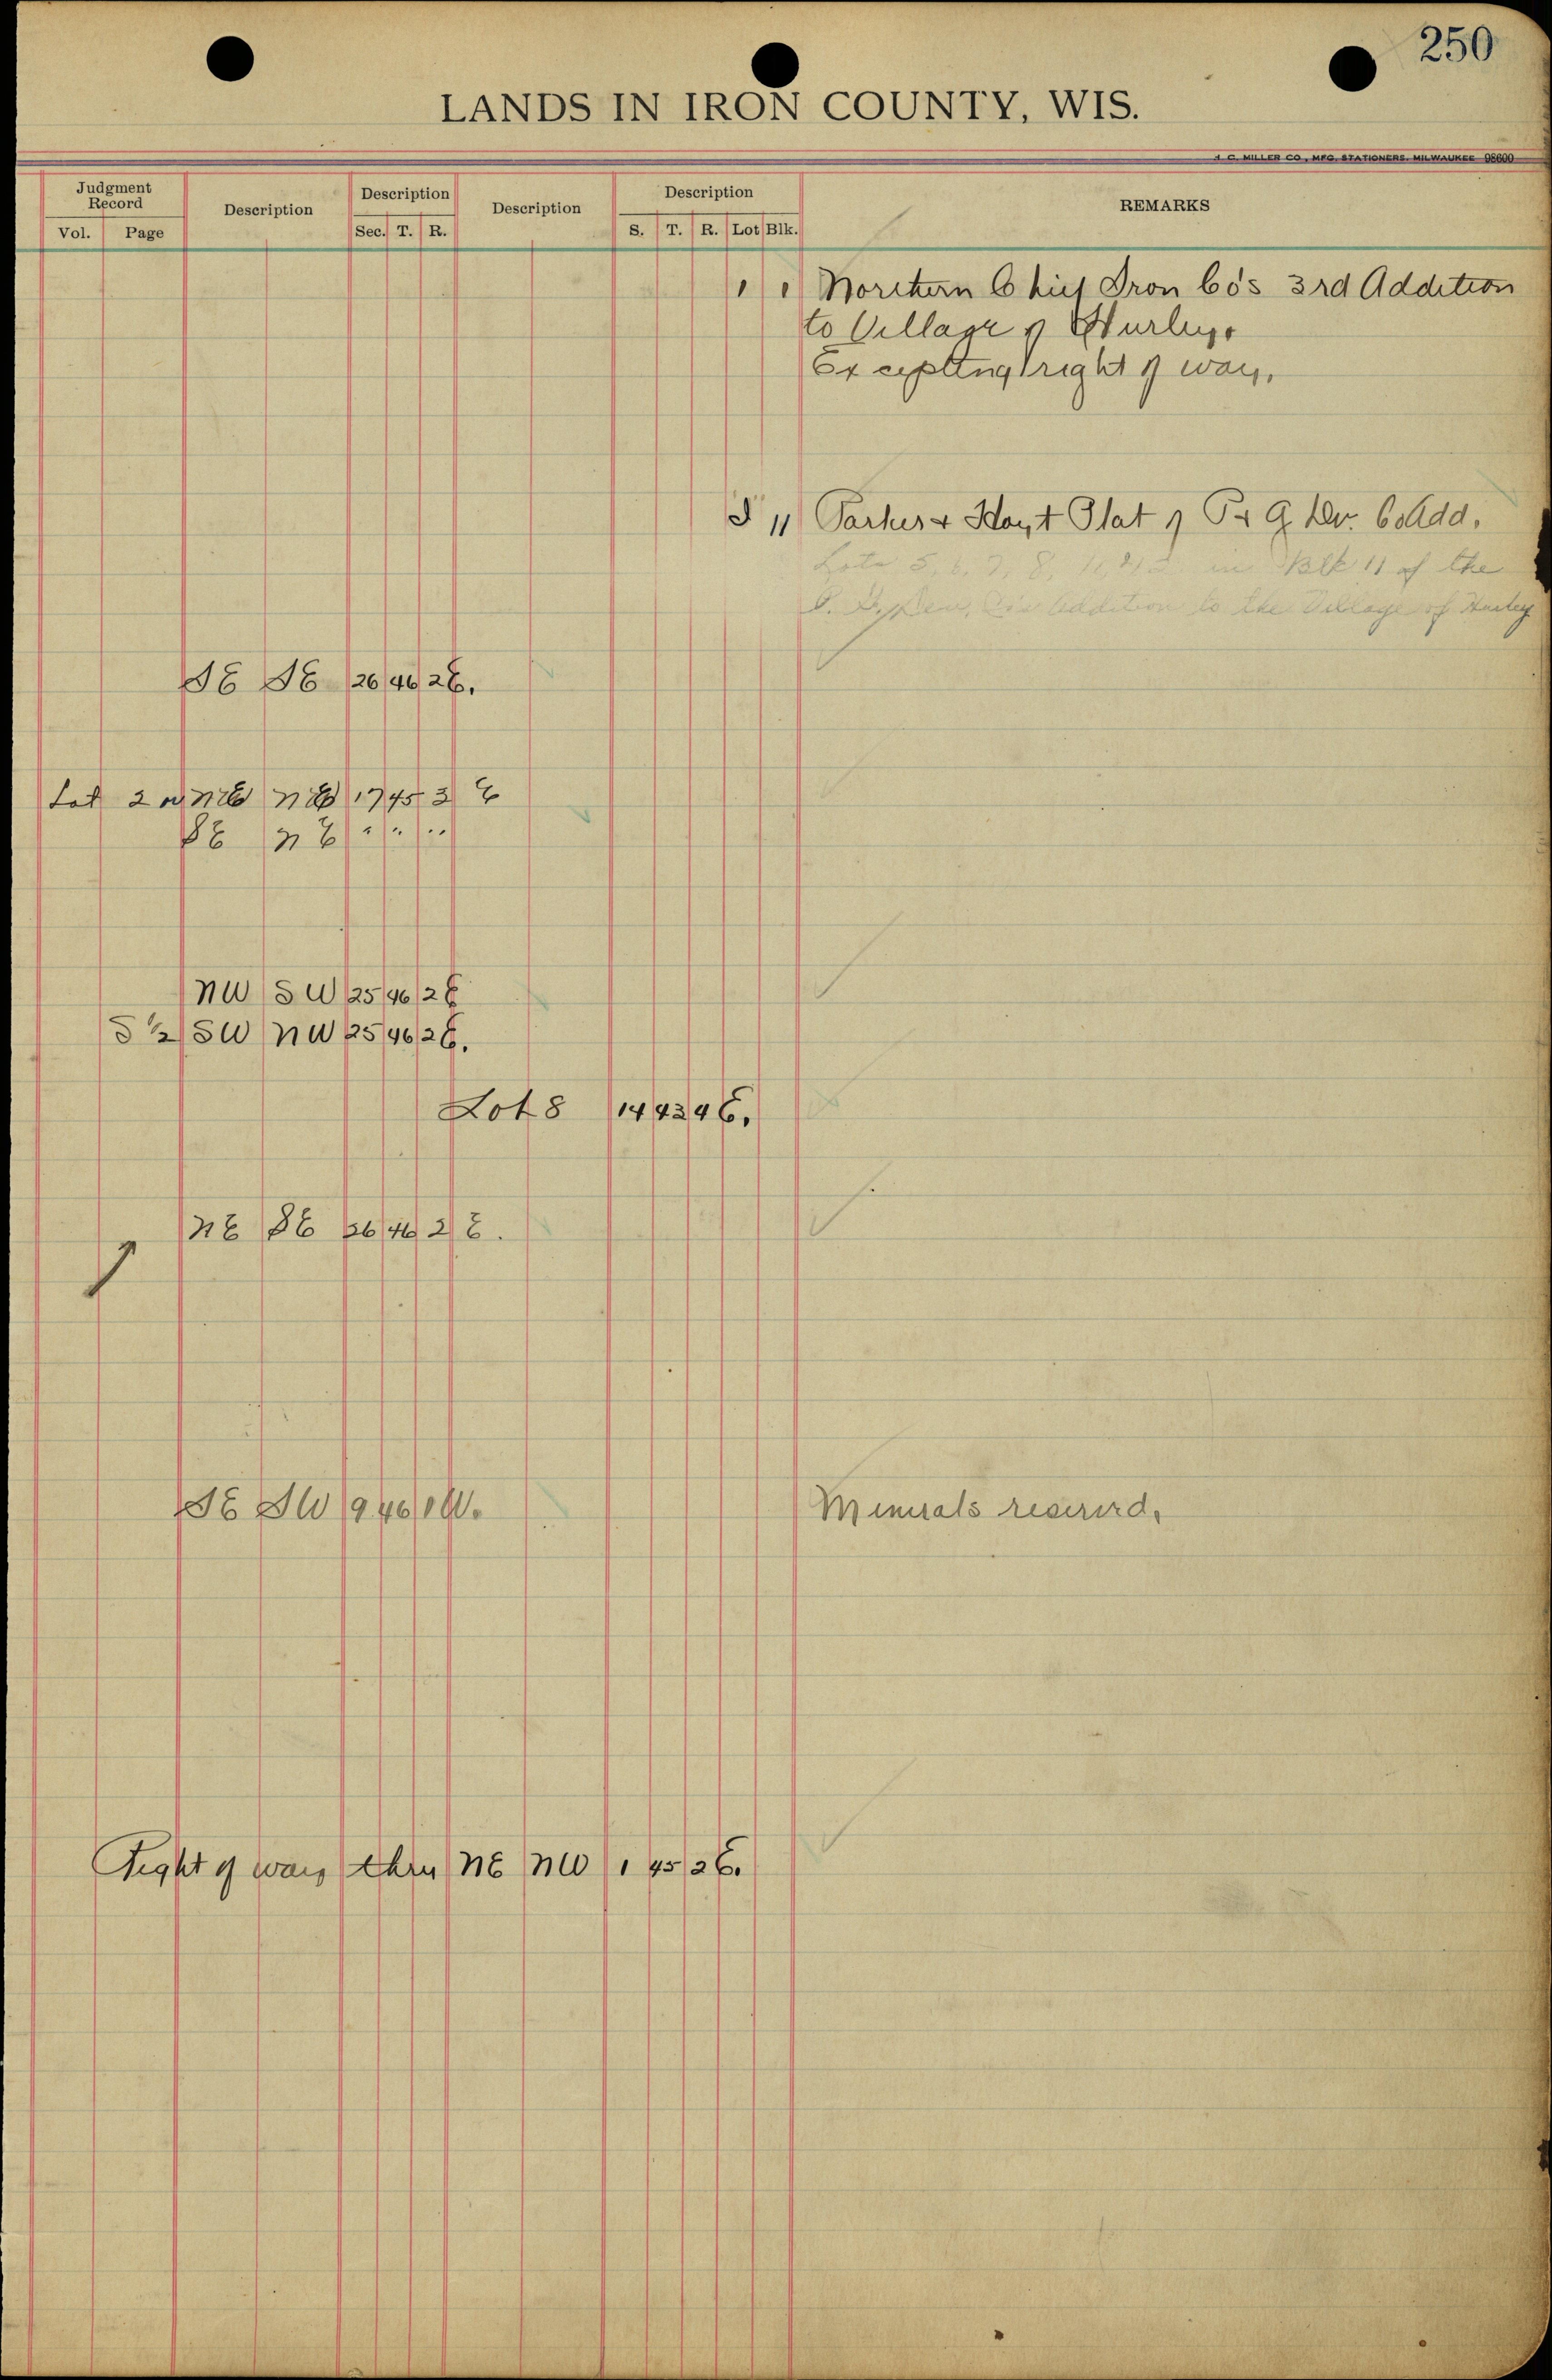 250
LANDS IN IRON COUNTY, WIS.
C. MILLER CO., MFG. STATIONERS. MILWAUKEE 98600
Judgment Record Description Description Description Description REMARKS
Vol. Page Sec. T. R. S. T. R. Lot Blk.
1 1 Northern Chief Iron Co's 3rd Addition
to Village of Hurley.
Excepting right of way.
11 Parker & Hoyt Plat of P & G Dev. Co Add.
Lots 5, 6, 7, 8, in Blk 11 of the
Addition to the Village of Hurley
SE SE 26 46 2 E.
Lot 2 NE NE 17 45 3 E
SE NE " " "
NW SW 25 46 2 E
S 1/2 SW NW 25 46 2 E.
Lot 8 14 43 4 E.
NE SE 26 46 2 E.
SE SW 9 46 1 W.
Minerals reserved.
Right of way thru NE NW 1 45 2 E.